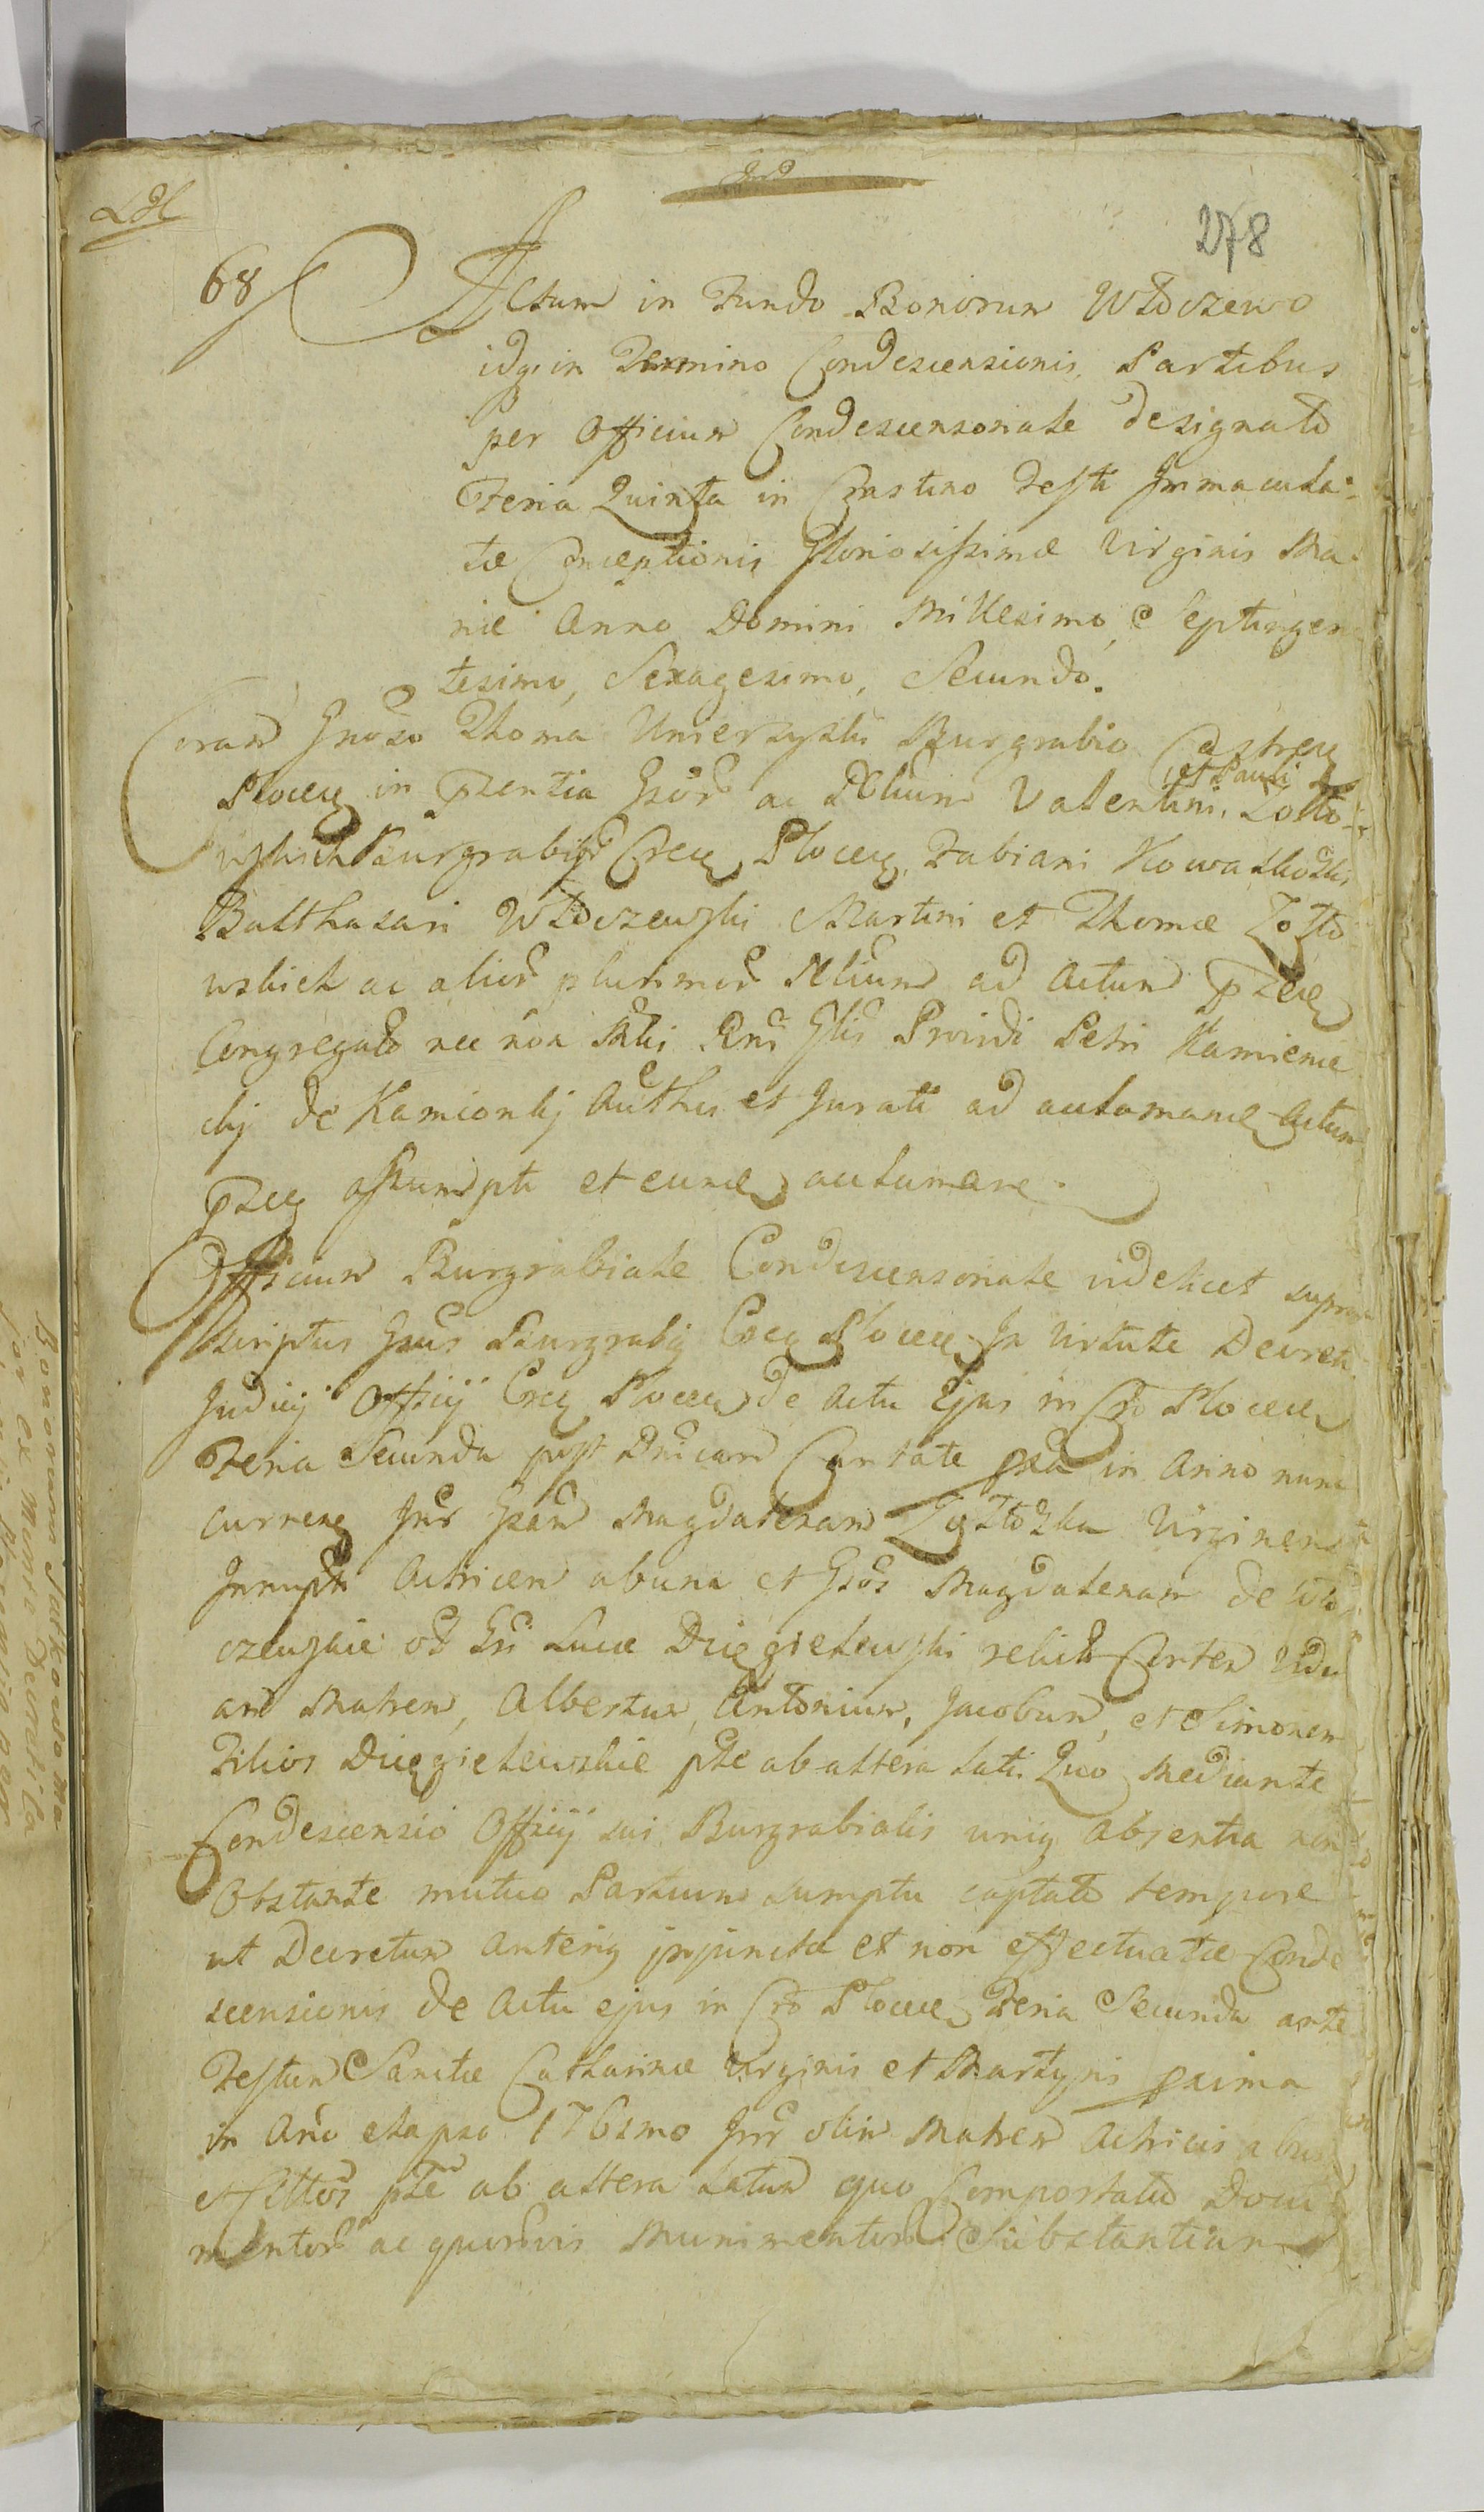 278
68
Actum in Fundo Bonorum Włoczewo
idq in Termino Condescensionis Partibus
per Officium Condescensoriale designato
Feria Quinta in Crastino Festi Immacula-
tæ Conceptionis Gloriosissimæ Virginis Ma-
riæ Anno Domini Millesimo Septingen
tesimo, Sexagesimo, Secundo.
Coram Gnoso Thoma Umierzyski Burgrabio Castren
Plocen in pzentia Gsor ac Nblium Valentini, et Pauli Zotto-
wskich Burgrabior Cren Plocen, Fabiani Kowalkoski
Balthasari Włoczewski Martini et Thomæ Zotto
wskich ac alior plurimor Nblium ad Actum pzen
Congregator nec non Mtri Rni Glis Providi Petri Kamienie
ckij de Kamionkij Authen et Jurati ad aclamand Actum
pzen assumpti et eund aclamare.
Officium Burgrabiale Condescensoriale videlicet supra
scriptus Gsus Burgrabij Cren Plocen In Virtute Decreti
Judicij Officij Cren Plocen de Actu Ejus in Cro Plocen
Feria Secunda post Dnicam Cantate pxa in Anno nunc
curren Inr Gsam Magdalenam Virginem
Innupt Actricem ab una et Gsos Magdalenam de Wło
czewskie olim Gsi Lucæ Dzięgielewski relict Conten Vidu
am Matrem, Albertum, Antonium, Jacobum, et Simonem
Filios Dzięgielewskie pte ab altera lati. Quo mediante
Condescensio Officij sui Burgrabialis unig absentia non
Obstante mutuo Partium sumptu captato tempore
ut Decretum Anterig injunctæ et non effectuatæ Conde
scensionis de Actu ejus in Cro Plocen Feria Secunda ante
Festum Sanctæ Catharinæ Virginis et Martyris pxima
in Ano elapso 1761mo Inr olim Matrem Actricis ab una
et Cittos pte ab altera Latum quo Comportatio Docu
mentor ac quorvis Munimentor Substantiam